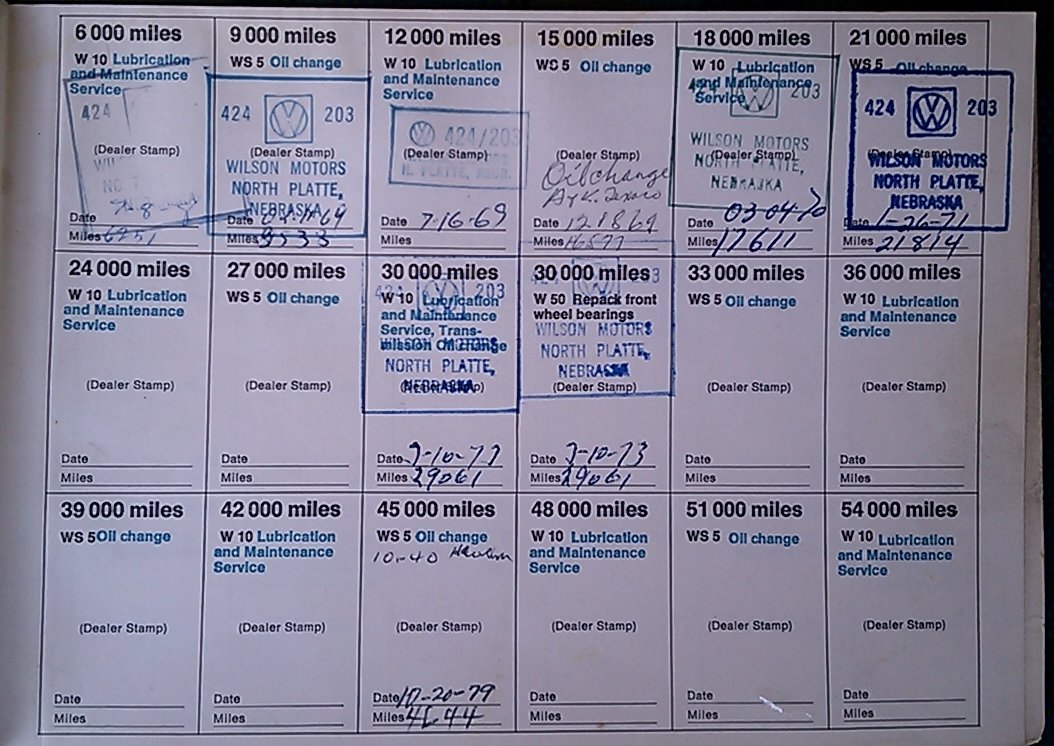 6 000 miles
W 10 Lubrication
and Maintenance
Service
424
(Dealer Stamp)
Date
Miles 6251
9 000 miles
WS 5 Oil change
424 203
(Dealer Stamp)
WILSON MOTORS
NORTH PLATTE,
NEBRASKA
Date
Miles 9533
12 000 miles
W 10 Lubrication
and Maintenance
Service
424/203
(Dealer Stamp)
N. PLATTE, NEBR.
Date 7-16-69
Miles
15 000 miles
WS 5 Oil change
(Dealer Stamp)
Oil change
Texaco
Date 121869
Miles 16577
18 000 miles
W 10 Lubrication
and Maintenance
Service
424 203
WILSON MOTORS
(Dealer Stamp)
NORTH PLATTE,
NEBRASKA
Date 03-04-70
Miles 17611
21 000 miles
WS 5 Oil change
424 203
(Dealer Stamp)
WILSON MOTORS
NORTH PLATTE,
NEBRASKA
Date 1-26-71
Miles 21814
24 000 miles
W 10 Lubrication
and Maintenance
Service
(Dealer Stamp)
Date
Miles
27 000 miles
WS 5 Oil change
(Dealer Stamp)
Date
Miles
30 000 miles
424 203
W 10 Lubrication
and Maintenance
Service, Trans-
mission Oil change
WILSON MOTORS
NORTH PLATTE,
NEBRASKA
(Dealer Stamp)
Date 3-10-73
Miles 29061
30 000 miles
W 50 Repack front
wheel bearings
WILSON MOTORS
NORTH PLATTE,
NEBRASKA
(Dealer Stamp)
Date 3-10-73
Miles 29061
33 000 miles
WS 5 Oil change
(Dealer Stamp)
Date
Miles
36 000 miles
W 10 Lubrication
and Maintenance
Service
(Dealer Stamp)
Date
Miles
39 000 miles
WS 5 Oil change
(Dealer Stamp)
Date
Miles
42 000 miles
W 10 Lubrication
and Maintenance
Service
(Dealer Stamp)
Date
Miles
45 000 miles
WS 5 Oil change
10-40
(Dealer Stamp)
Date 10-20-79
Miles
48 000 miles
W 10 Lubrication
and Maintenance
Service
(Dealer Stamp)
Date
Miles
51 000 miles
WS 5 Oil change
(Dealer Stamp)
Date
Miles
54 000 miles
W 10 Lubrication
and Maintenance
Service
(Dealer Stamp)
Date
Miles